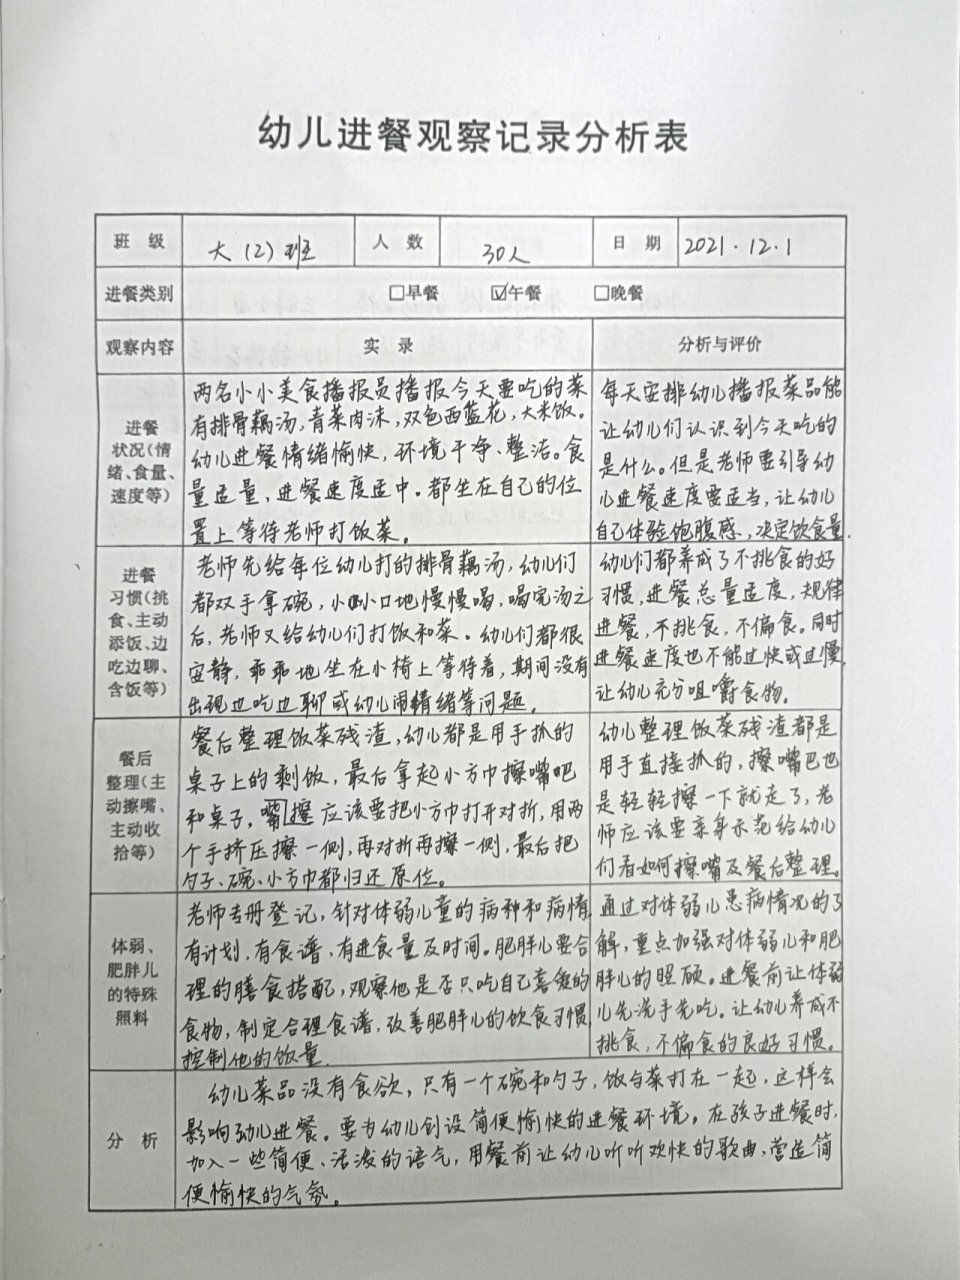 幼儿进餐观察记录分析表
班 级 大(2)班 人 数 30人 日 期 2021.12.1
进餐类别 □早餐 ☑午餐 □晚餐
观察内容 实 录 分析与评价
进餐
状况(情
绪、食量、
速度等)
两名小小美食播报员播报今天要吃的菜
有排骨藕汤,青菜肉沫,双色西蓝花,大米饭。
幼儿进餐情绪愉快,环境干净、整洁。食
量适量,进餐速度适中。都坐在自己的位
置上等待老师打饭菜。
每天安排幼儿播报菜品能
让幼儿们认识到今天吃的
是什么。但是老师要引导幼
儿进餐速度要适当,让幼儿
自己体验饱腹感,决定饮食量.
进餐
习惯(挑
食、主动
添饭、边
吃边聊、
含饭等)
老师先给每位幼儿打的排骨藕汤,幼儿们
都双手拿碗,小口地慢慢喝,喝完汤之
后,老师又给幼儿们打饭和菜。幼儿们都很
安静,乖乖地坐在小椅上等待着,期间没有
出现边吃边聊或幼儿闹情绪等问题。
幼儿们都养成了不挑食的好
习惯,进餐总量适度,规律
进餐,不挑食,不偏食。同时
进餐速度也不能过快或过慢,
让幼儿充分咀嚼食物。
餐后
整理(主
动擦嘴、
主动收
拾等)
餐后整理饭菜残渣,幼儿都是用手抓的
桌子上的剩饭,最后拿起小方巾擦嘴吧
和桌子,嘴擦应该要把小方巾打开对折,用两
个手挤压擦一侧,再对折再擦一侧,最后把
勺子、碗、小方巾都归还原位。
幼儿整理饭菜残渣都是
用手直接抓的,擦嘴巴也
是轻轻擦一下就走了,老
师应该要亲身示范给幼儿
们看如何擦嘴及餐后整理。
体弱、
肥胖儿
的特殊
照料
老师专册登记,针对体弱儿童的病种和病情,
有计划,有食谱,有进食量及时间。肥胖儿要合
理的膳食搭配,观察他是否只吃自己喜爱的
食物,制定合理食谱,改善肥胖儿的饮食习惯,
控制他的饭量.
通过对体弱儿患病情况的了
解,重点加强对体弱儿和肥
胖儿的照顾。进餐前让体弱
儿先洗手先吃。让幼儿养成不
挑食,不偏食的良好习惯。
分 析
幼儿菜品没有食欲,只有一个碗和勺子,饭与菜打在一起,这样会
影响幼儿进餐。要为幼儿创设简便愉快的进餐环境。在孩子进餐时,
加入一些简便、活泼的语气,用餐前让幼儿听听欢快的歌曲,营造简
便愉快的气氛。